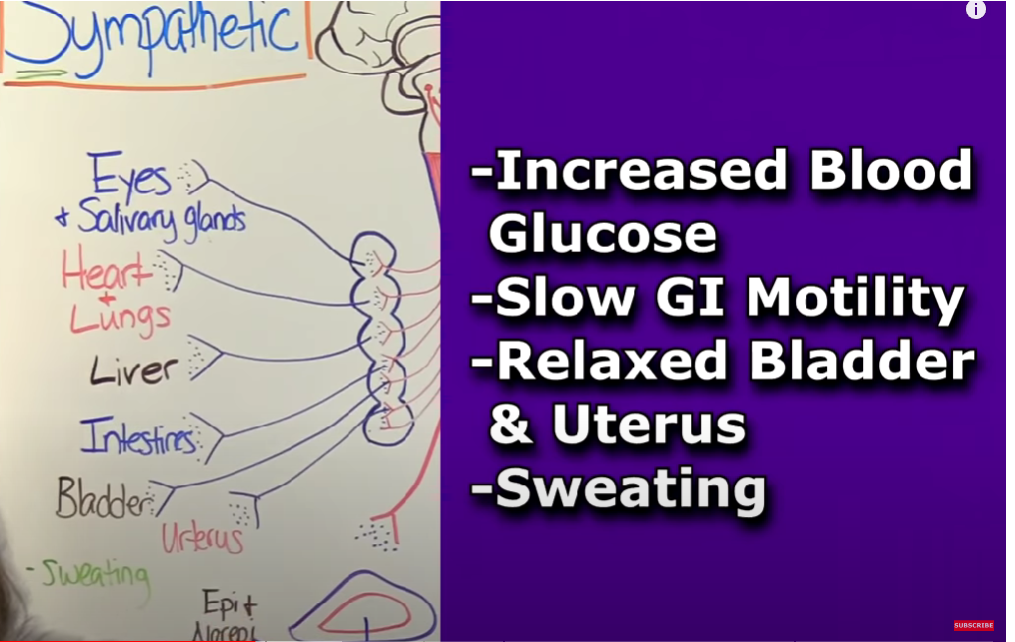 Sympathetic
Eyes
+ Salivary glands
Heart
+
Lungs
Liver
Intestines
Bladder
Urterus
- Sweating
Epi +
Norepi
-Increased Blood
Glucose
-Slow GI Motility
-Relaxed Bladder
& Uterus
-Sweating
i
SUBSCRIBE